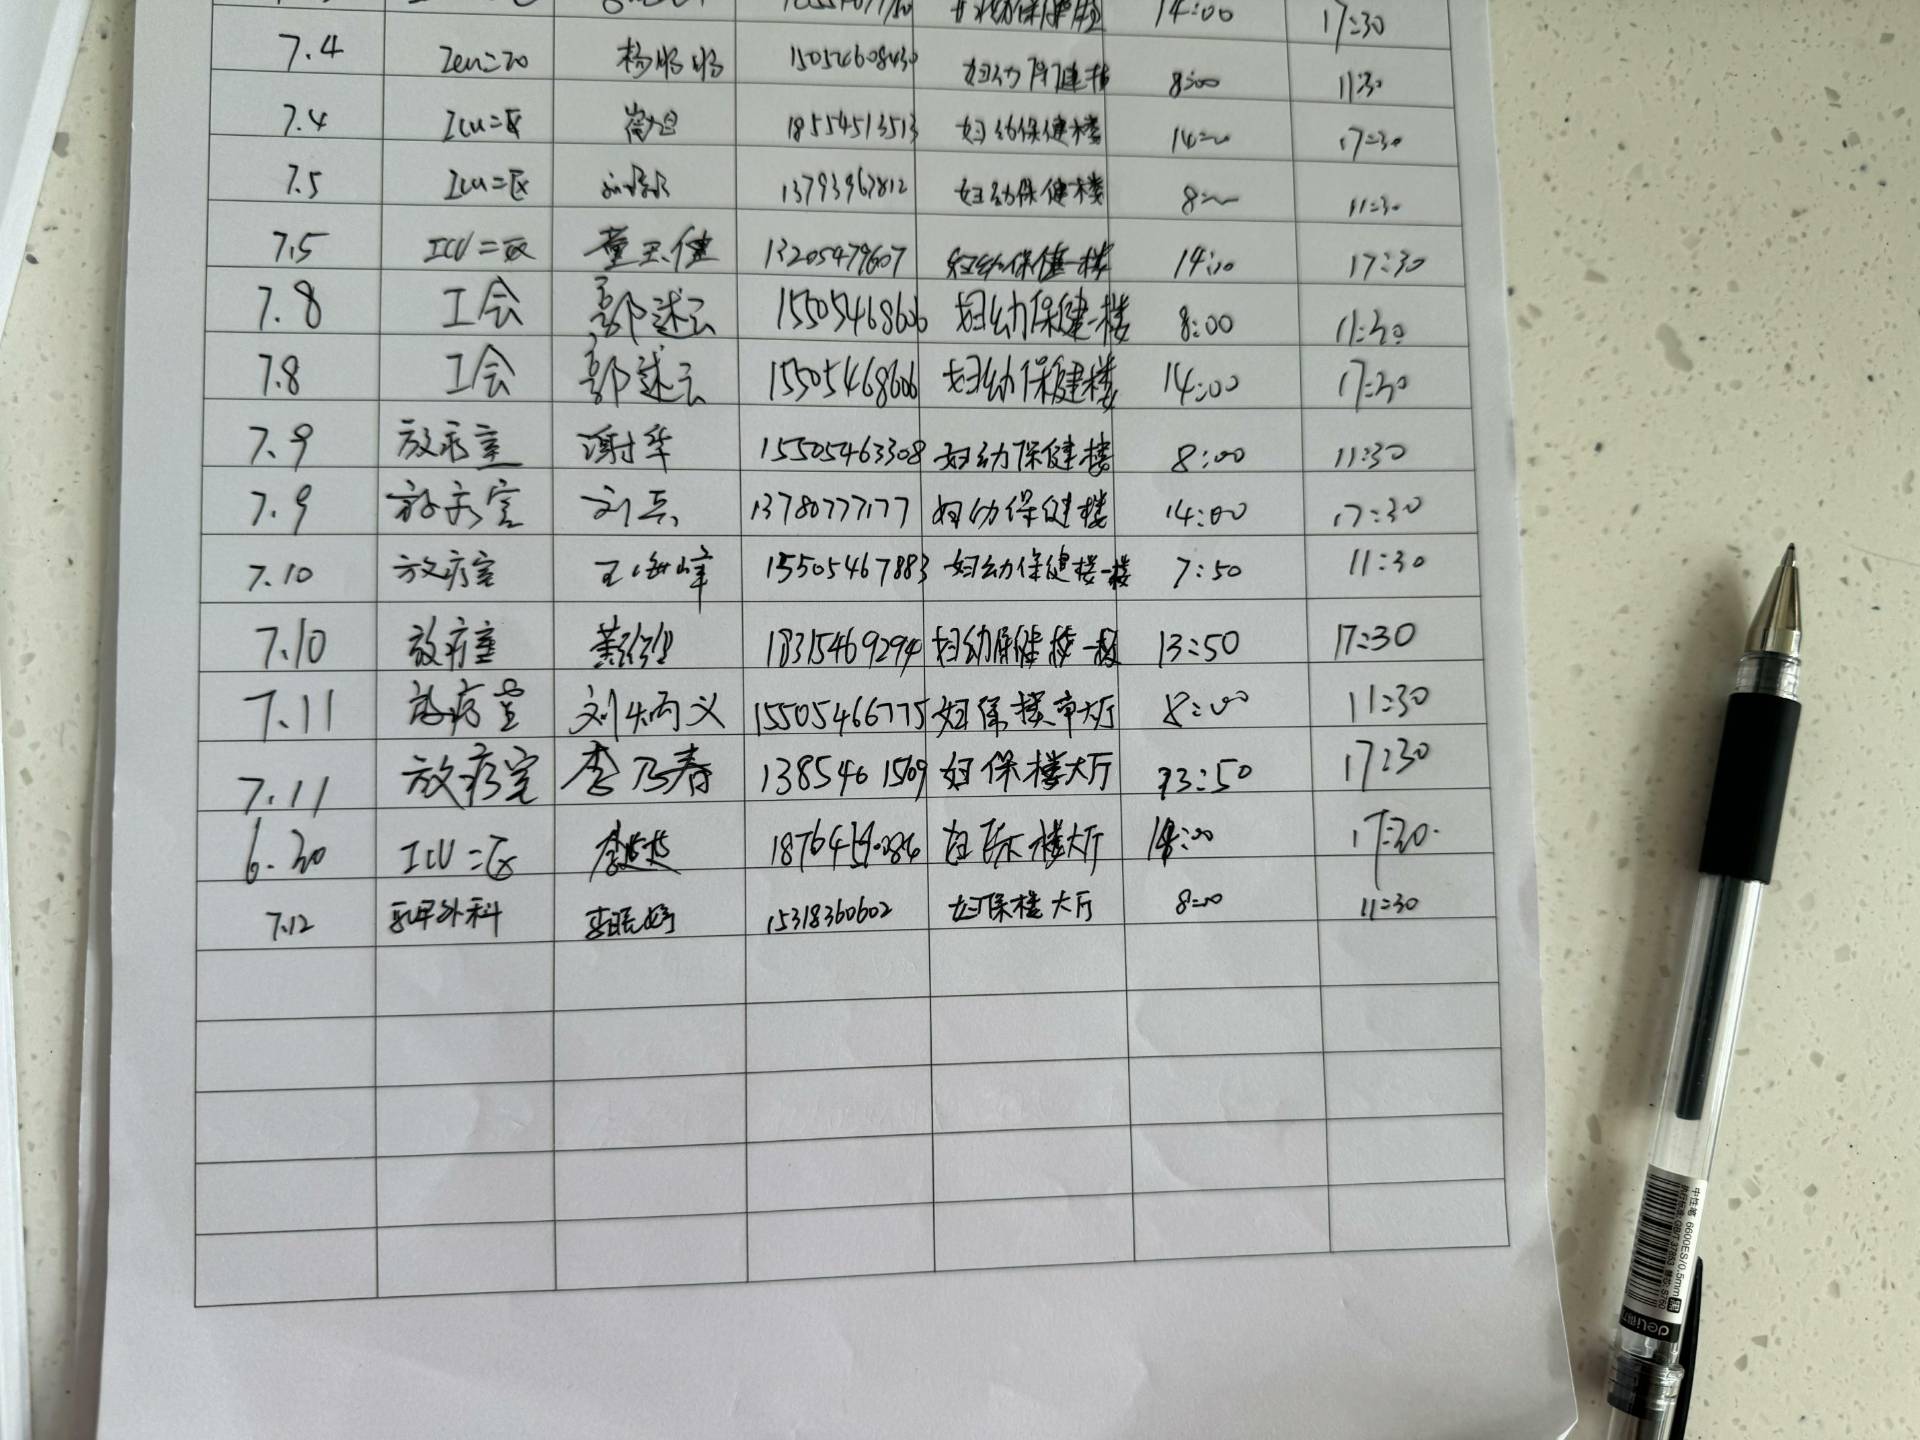 14:00 17:30
7.4 15054608430 妇幼保健楼 8:00 11:30
7.4 ICU=区 18554513513 妇幼保健楼 17=30
7.5 ICU=区 13793967812 妇幼保健楼 11=30
7.5 ICU=区 童玉健 13205479607 妇幼保健一楼 14:00 17:30
7.8 工会 郭述云 15505468606 妇幼保健一楼 8:00 11:30
7.8 工会 郭述云 15505468606 妇幼保健楼 14:00 17:30
7.9 放疗室 谢华 15505463308 妇幼保健楼 8:00 11:30
7.9 放疗室 刘兵 13780777177 妇幼保健楼 14:00 17:30
7.10 放疗室 王海峰 15505467883 妇幼保健楼一楼 7:50 11:30
7.10 放疗室 18315469294 妇幼保健楼一楼 13:50 17:30
7.11 放疗室 刘炳义 15505466775 妇保楼 大厅 8:00 11:30
7.11 放疗室 李乃春 1385461509 妇保楼大厅 13:50 17:30
6.30 ICU=区 楼大厅 14:00 17:30
7.12 乳甲外科 15318360602 妇保楼大厅 8:00 11=30
中性笔 6600ES/0.5mm
deli